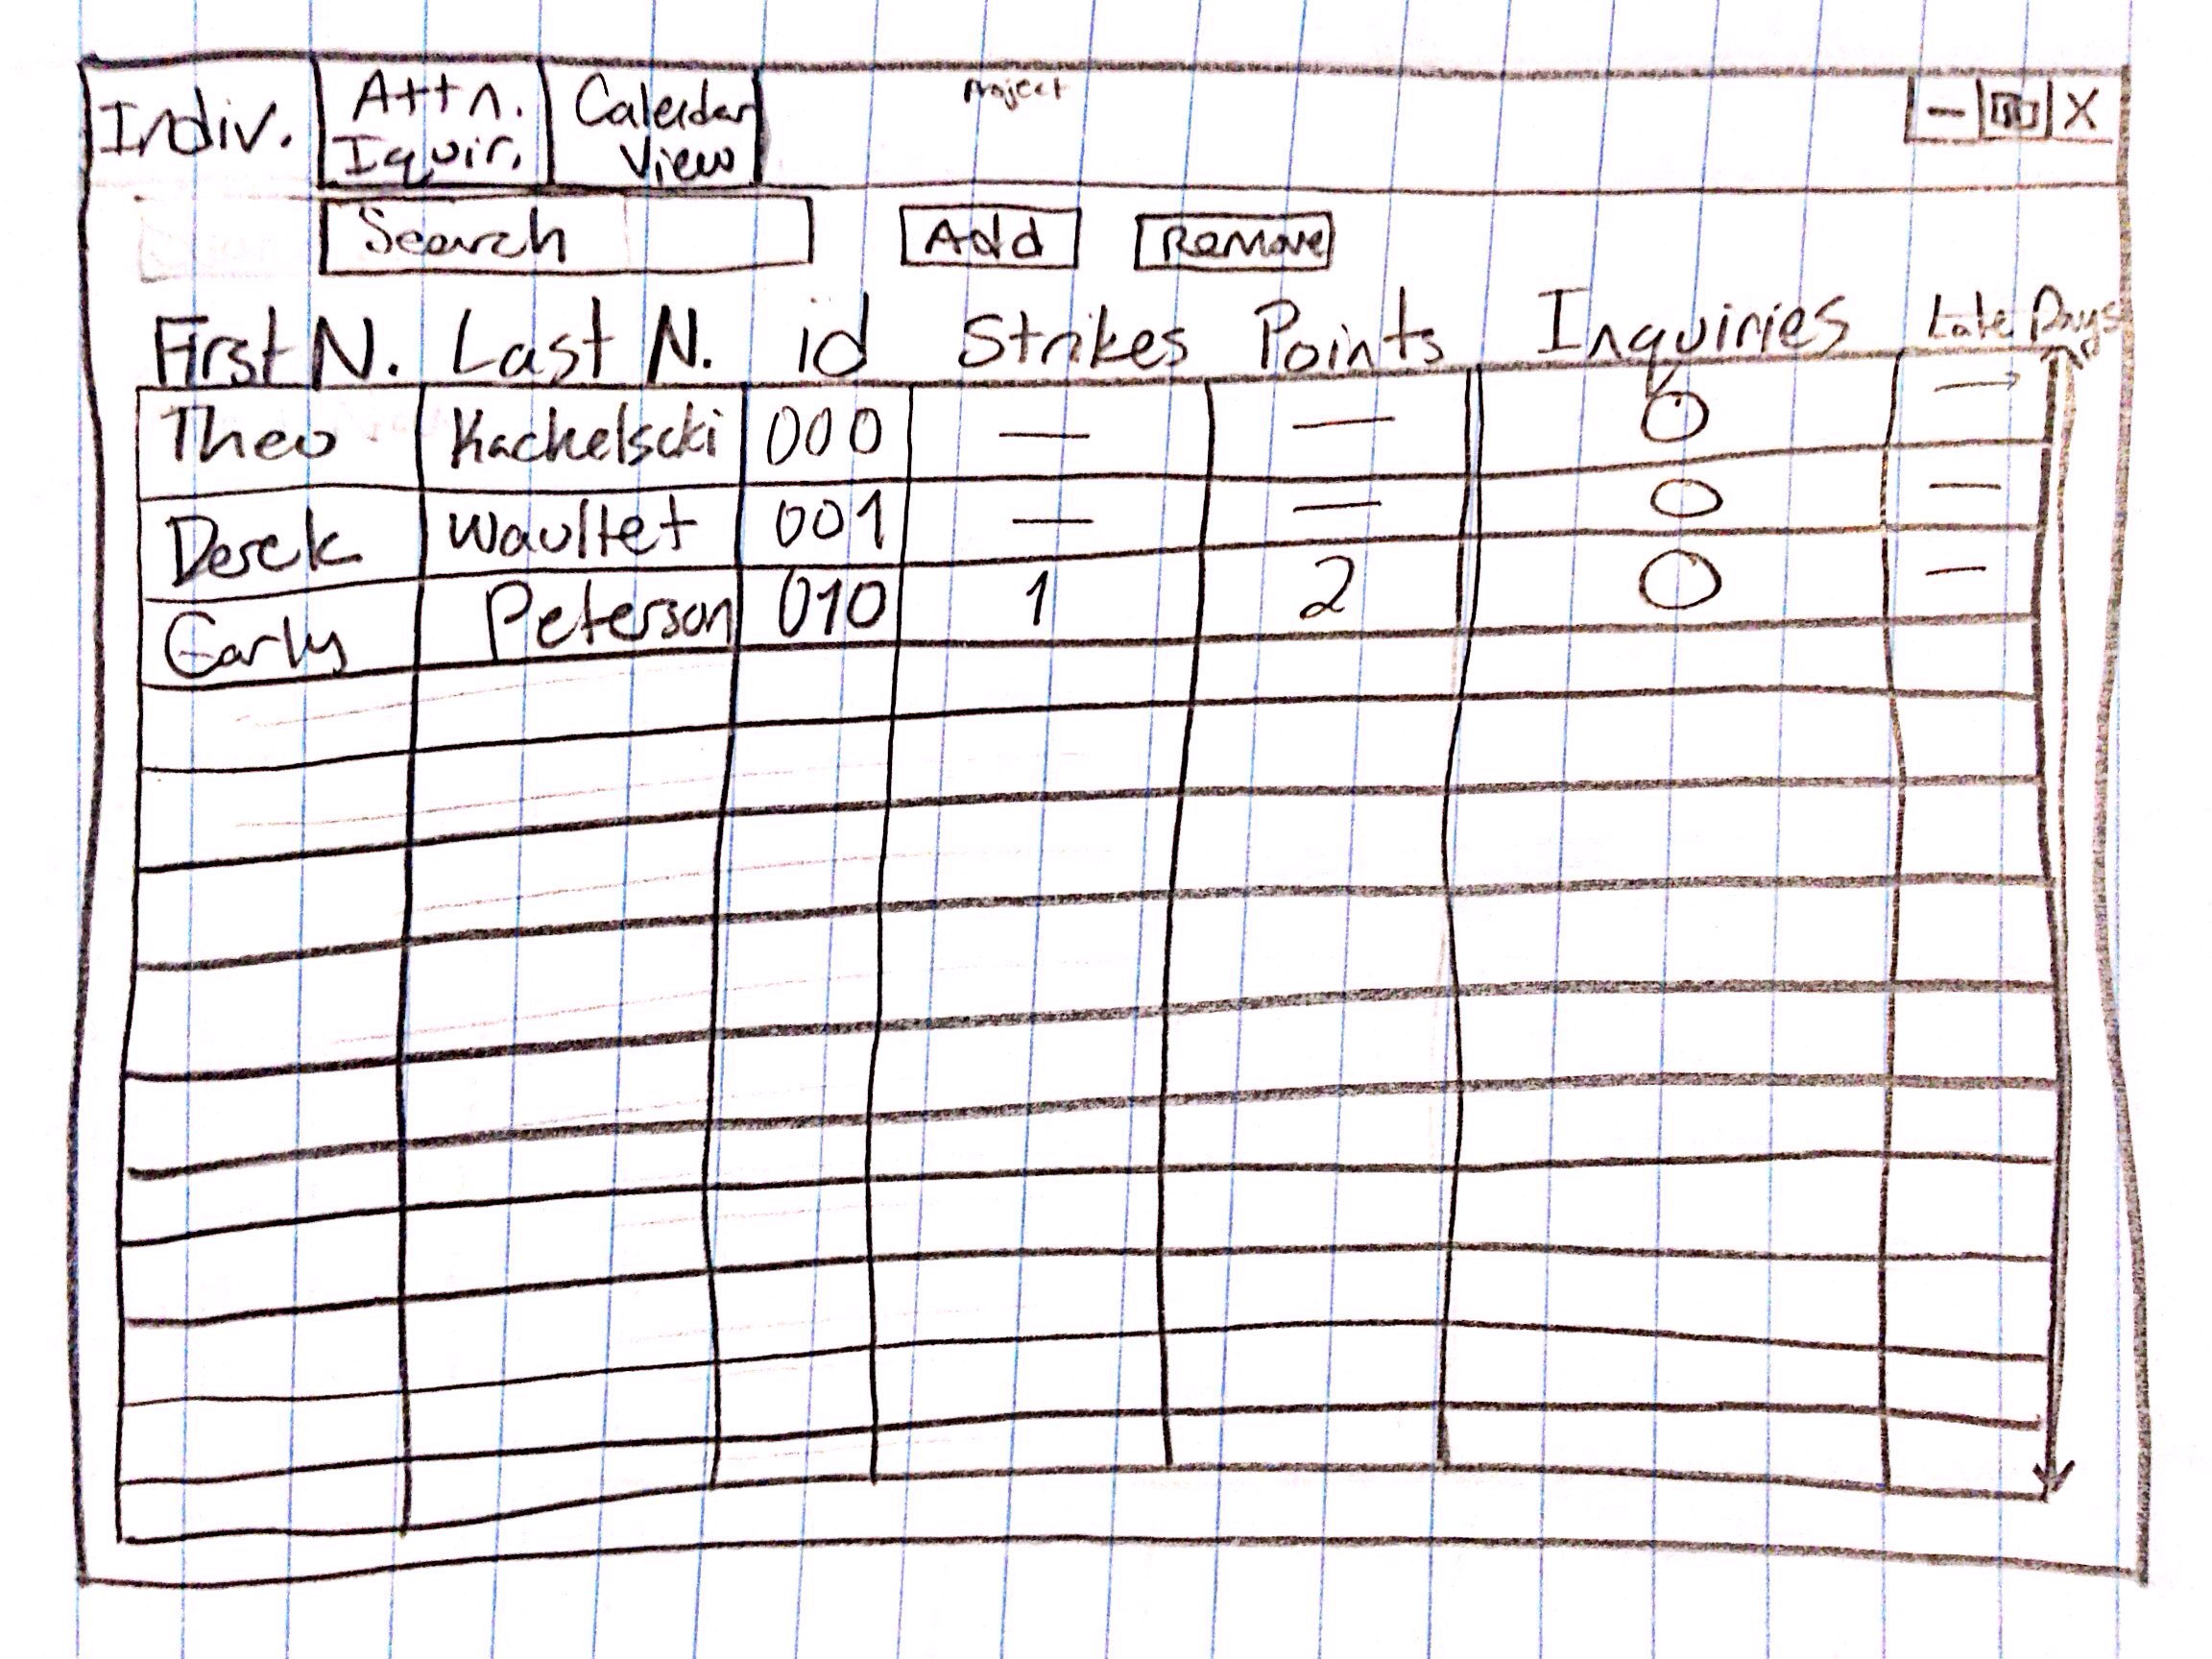 Indiv.
Attn.
Iquir.
Calendar
View
Project
— X
Search
Add
Remove
First N. Last N. id Strikes Points Inquiries Late Days
Theo Kachelscki 000 — — 0 —
Derek Waultet 001 — — 0 —
Garly Peterson 010 1 2 0 —